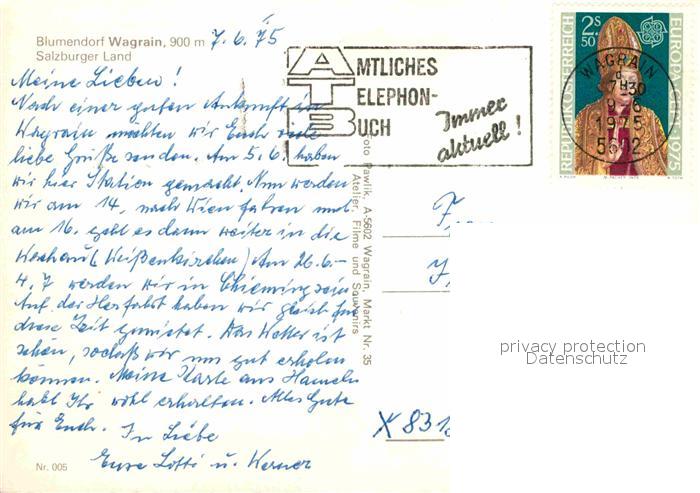 Blumendorf Wagrain, 900 m 7.6.75
Salzburger Land
Meine Lieben!
Nach einer guten Ankunft in
Wagrain möchten wir Euch viele
liebe Grüße senden. Am 5.6. haben
wir hier Station gemacht. Nun werden
wir am 14. nach Wien fahren und
am 16. geht es dann weiter in die
Wachau (Weißenkirchen) Am 26.6.-
4.7 werden wir in Chieming sein
Auf der Herfahrt haben wir gleich für
diese Zeit gemietet. Das Wetter ist
schön, sodaß wir uns gut erholen
können. Meine Karte aus Hameln
habt Ihr wohl erhalten. Alles Gute
für Euch. In Liebe
Eure Lotti u. Werner
Nr. 005
Foto Pawlik, A-5602 Wagrain, Markt Nr. 35
Atelier, Filme und Souvenirs
AMTLICHES
TELEPHON-
BUCH
Immer
aktuell!
2S
50
REPUBLIK ÖSTERREICH
EUROPA CEPT 1975
WAGRAIN
d
7H30
9.6
1975
5602
F
X 831
privacy protection
Datenschutz